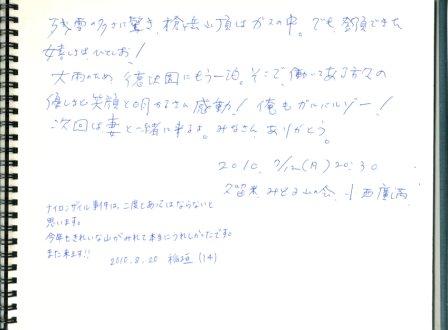 残雪の多さに驚き、槍岳山頂はガスの中。でも登頂できた
嬉しさはひとしお!
大雨のため 徳沢園にもう一泊。そこで、働いてある方々の
優しさと笑顔と明かるさに感動! 俺もガンバルゾー!
次回は妻と一緒に来るよ。みなさん ありがとう。
2010. 7/12(月) 20:30
久留米 みどり山の会 小西
ナイロンザイル事件は、二度とあってはならないと
思います。
今年もきれいな山がみれて本当にうれしかったです。
また来ます!!
2010.8.20 稲垣 (14)